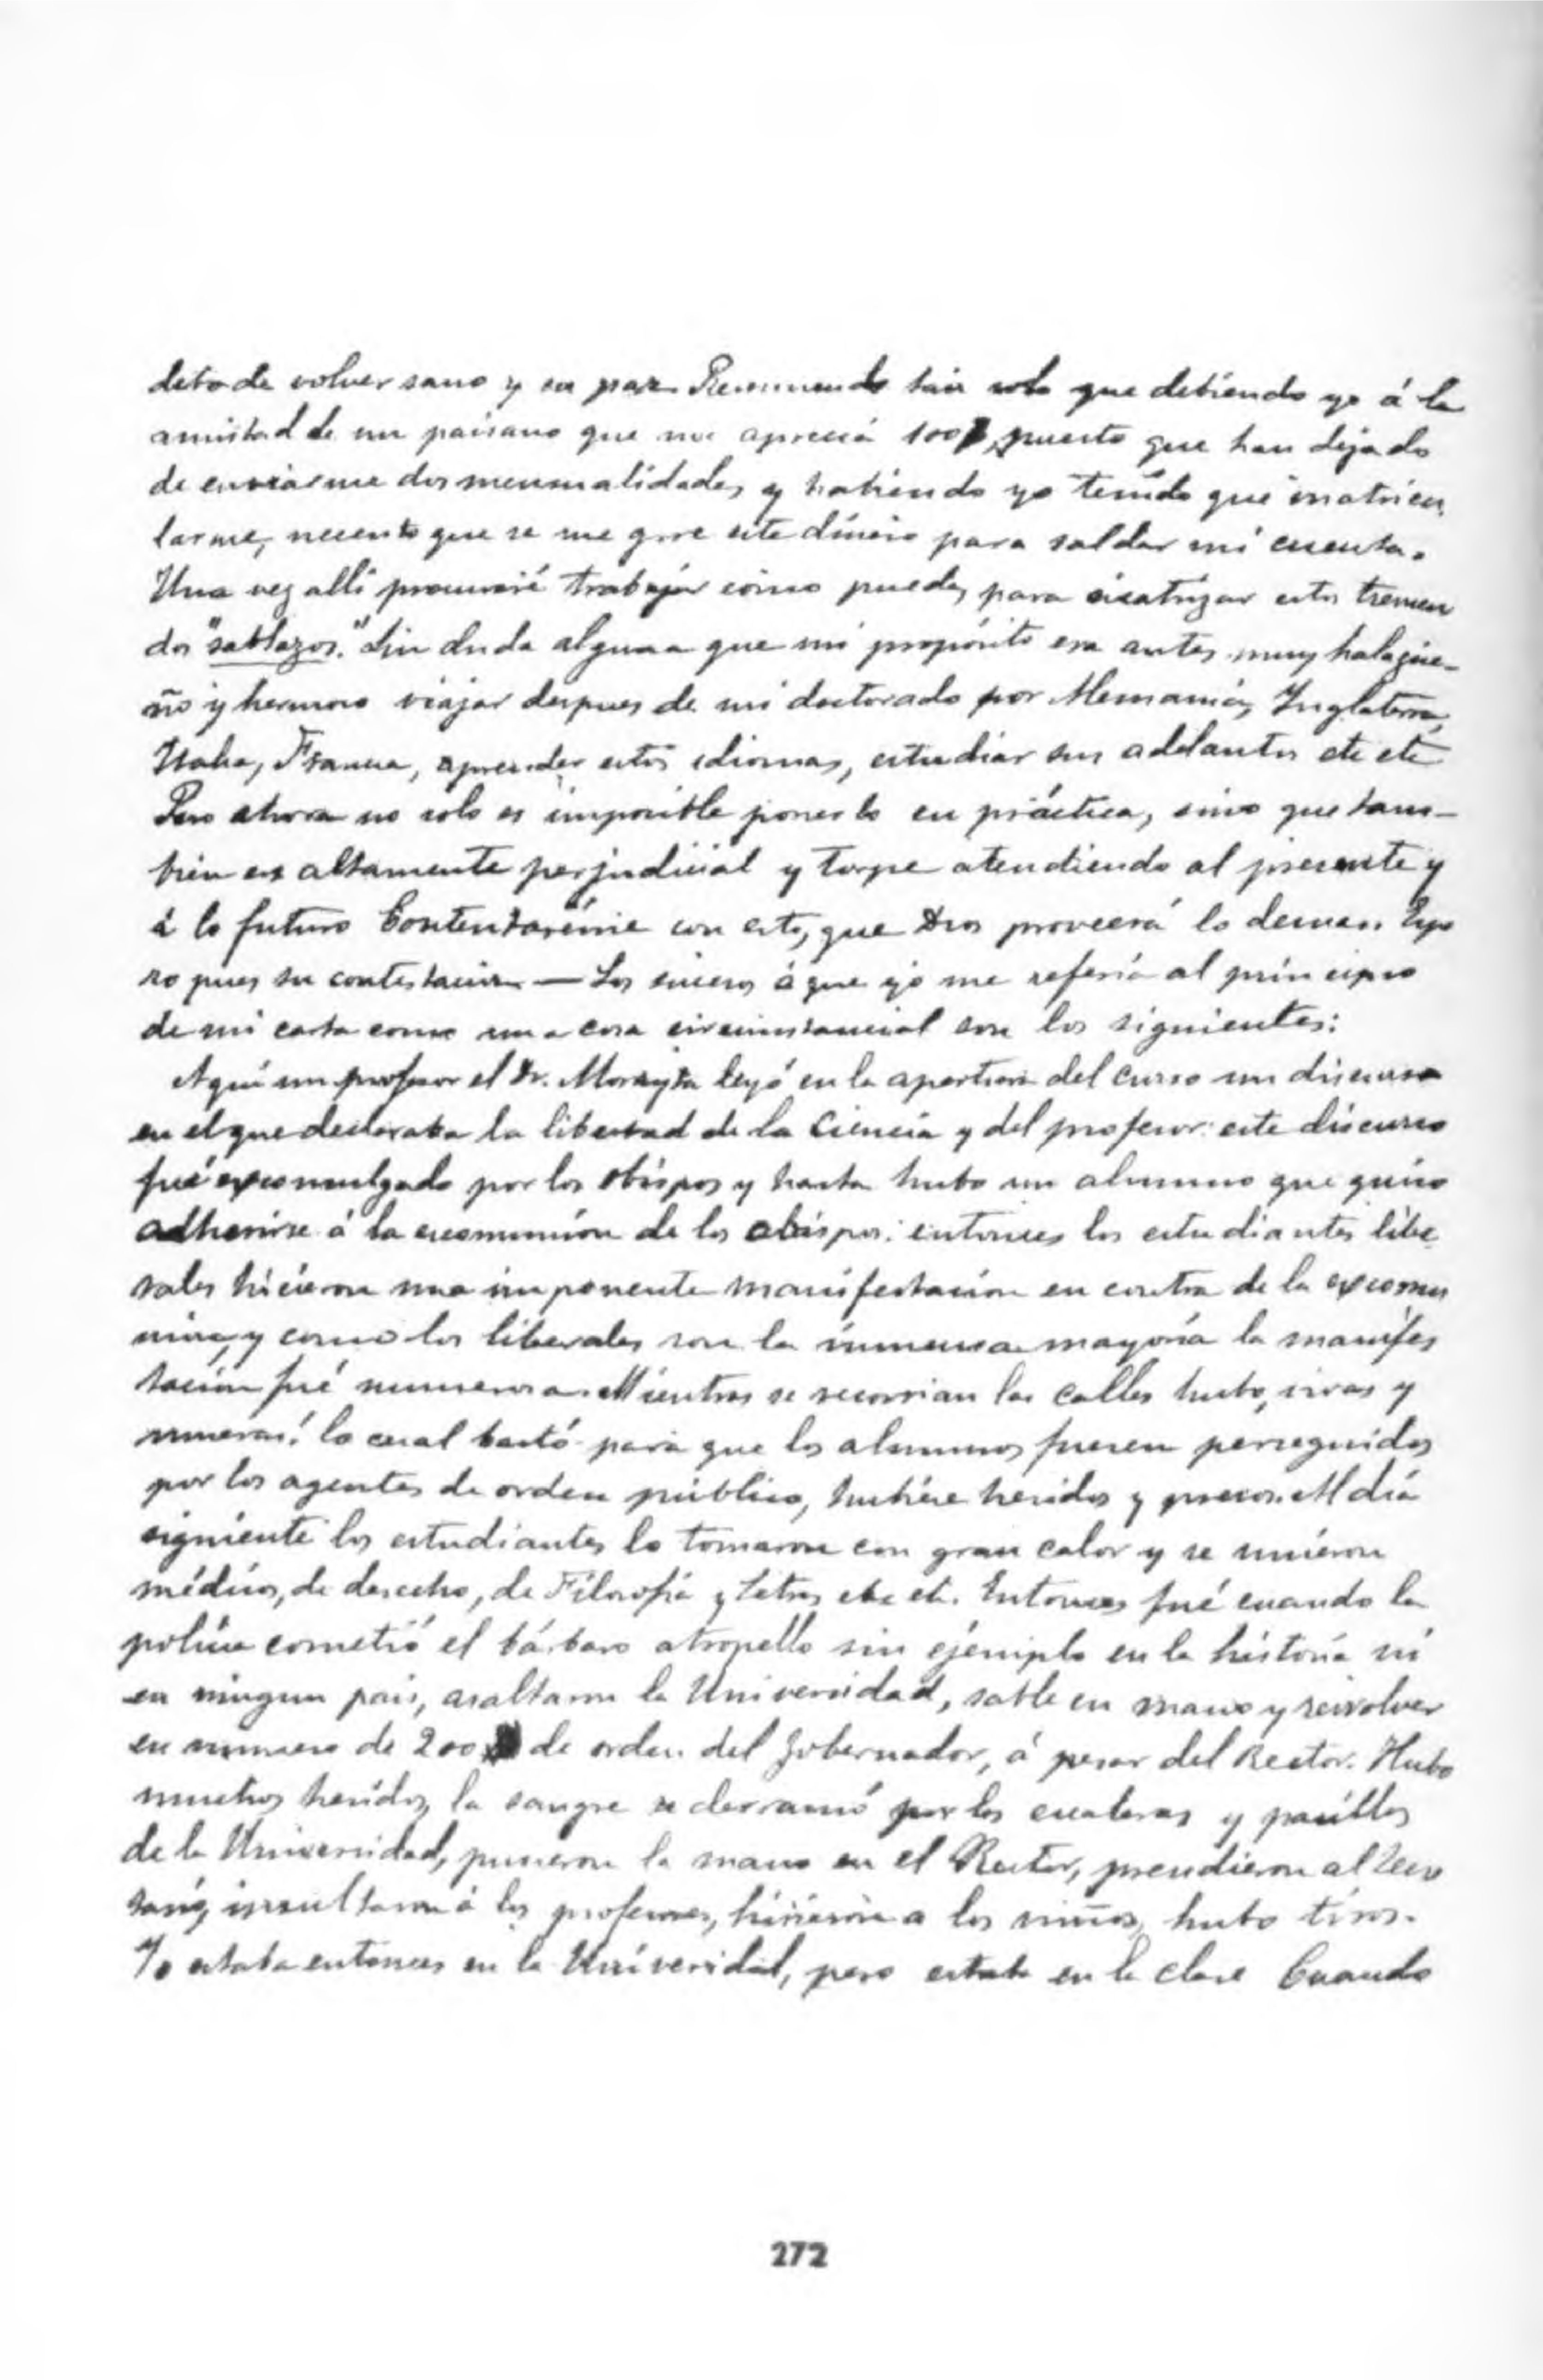 debo de volver sano y en paz. Resumiendo tan solo que debiendo yo á la
amistad de un paisano que me aprecia 100 puesto que han dejado
de enviarme dos mensualidades, y habiendo yo tenido que matricu
larme, necesito que se me gire este dinero para saldar mi cuenta.
Una vez alli procuraré trabajar como pueda, para cicatrizar estos tremen
dos "sablazos." Sin duda alguna que mi propósito era antes muy halagüe-
ño y hermoso viajar despues de mi doctorado por Alemania, Inglaterra,
Italia, Francia, aprender estos idiomas, estudiar sus adelantos etc etc
Pero ahora no solo es imposible ponerlo en práctica, sino que tam-
bien es altamente perjudicial y torpe atendiendo al presente y
á lo futuro Contentaréme con esto, que Dios proveerá lo demas. Espe
ro pues su contestacion — Los sucesos á que yo me referia al principio
de mi carta como una cosa circunstancial son los siguientes:
Aquí un profesor el Dr. Morayta leyó en la apertura del curso un discurso
en el que declaraba la libertad de la Ciencia y del profesor: este discurso
fué excomulgado por los obispos y hasta hubo un alumno que quiso
adherirse á la excomunión de los obispos: entonces los estudiantes libe
rales hicieron una imponente manifestacion en contra de la excomu
nion, y como los liberales son la inmensa mayoría la manifes
tación fué numerosa. Mientras se recorrian las calles hubo, vivas y
mueras! lo cual bastó para que los alumnos fuesen perseguidos
por los agentes de orden público, hubiese heridos y presos. Al día
siguiente los estudiantes lo tomaron con gran calor y se unieron
médicos, de derecho, de Filosofía y Letras etc etc. Entonces fué cuando la
policía cometió el bárbaro atropello sin ejemplo en la historia ni
en ningun pais, asaltaron la Universidad, sable en mano y revolver
en numero de 200 de orden del Gobernador, á pesar del Rector. Hubo
muchos heridos, la sangre se derramó por las escaleras y pasillos
de la Universidad, pusieron la mano en el Rector, prendieron al Secre
tario, insultaron á los profesores, hirieron a los niños, hubo tiros.
Yo estaba entonces en la Universidad, pero estaba en la clase Cuando
272